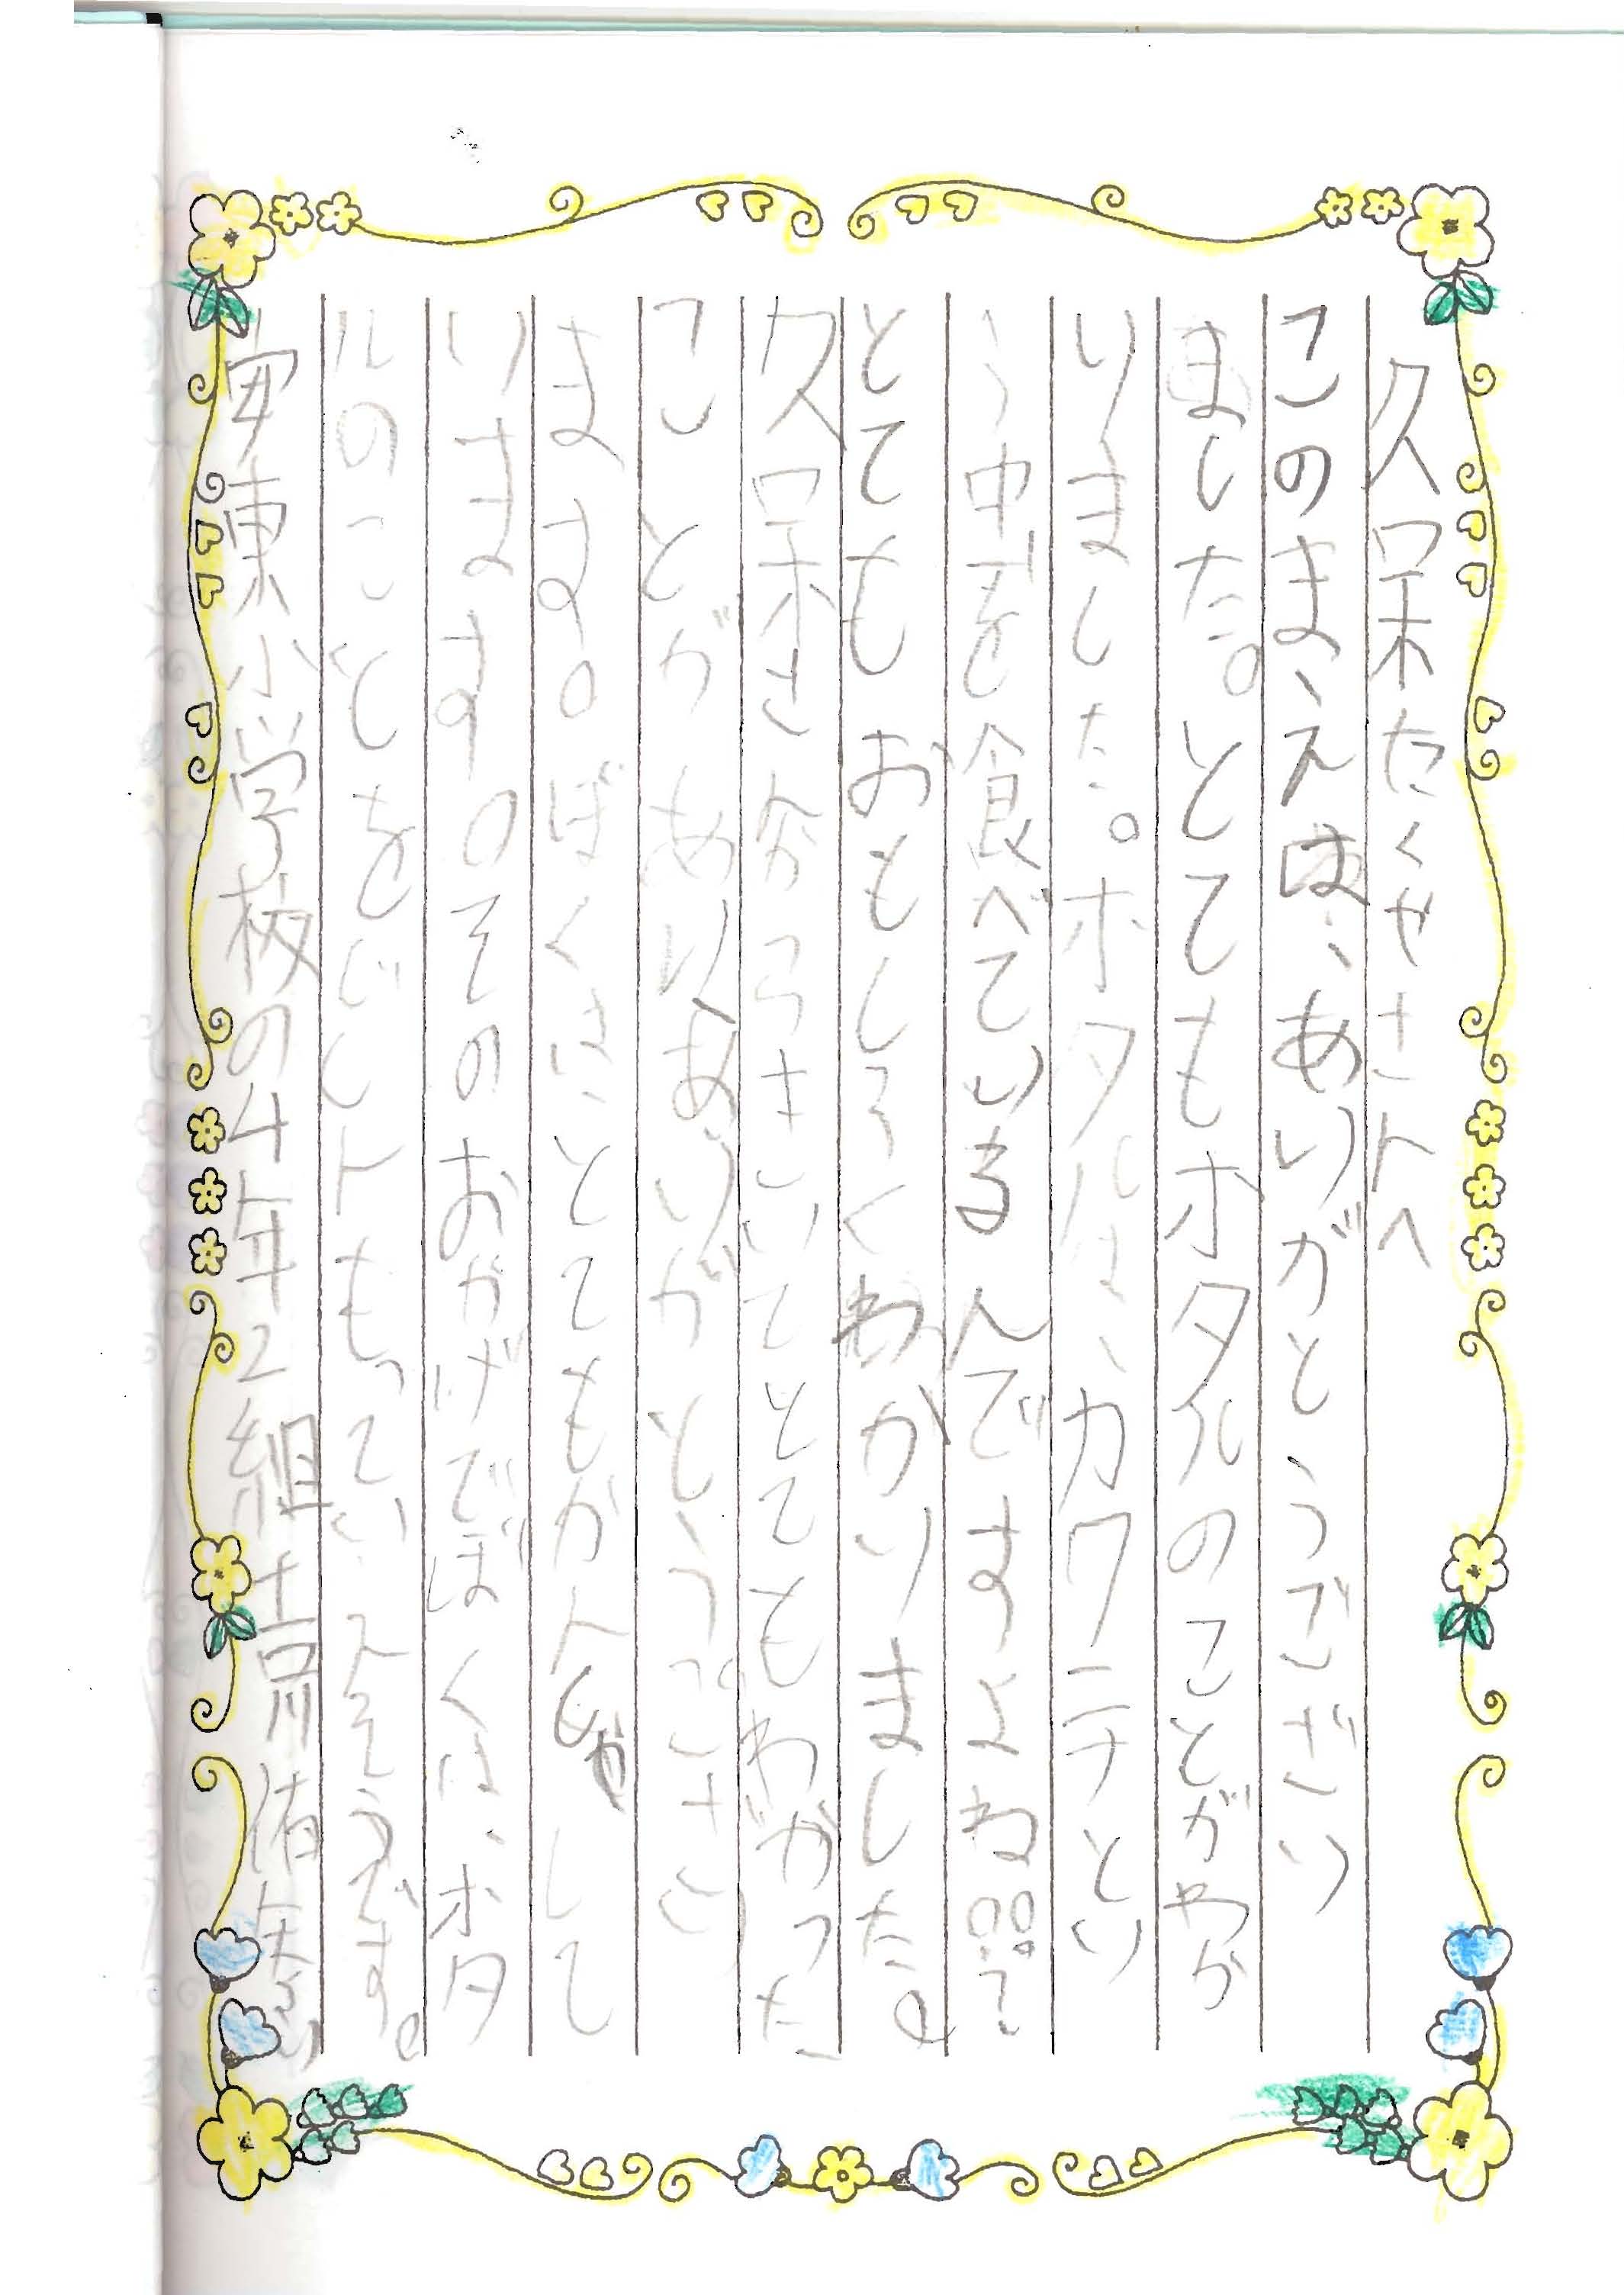 久保たくやさんへ
このまえは、ありがとうござい
ました。とてもホタルのことがわか
りました。ホタルは、カワニナとい
う中を食べているんですよね。。て
とてもおもしろくわかりました。
久保さんからきいてとてもわかった
ことがあり、ありがとうござい
ます。ぼくは、とてもかんしゃして
います。そのおかげでぼくは、ホタ
ルのことをじしんもっていえそうです。
安東小学校の4年2組